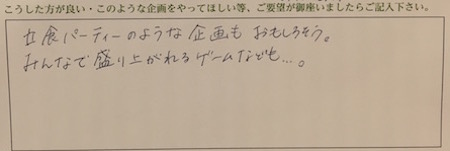 こうした方が良い・このような企画をやってほしい等、ご要望が御座いましたらご記入下さい。
立食パーティーのような企画もおもしろそう。
みんなで盛り上がれるゲームなども…。